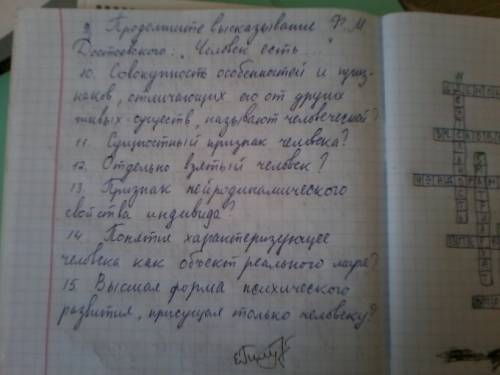 9. Продолжите высказывание Ф.М.
Достоевского: „Человек есть ..."
10. Совокупность особенностей и приз-
наков, отличающих его от других
живых существ, называют человеческой?
11. Сущностный признак человека?
12. Отдельно взятый человек?
13. Признак нейродинамического
свойства индивида?
14. Понятия характеризующее
человека как объект реального мира?
15. Высшая форма психического
развития, присущая только человеку?